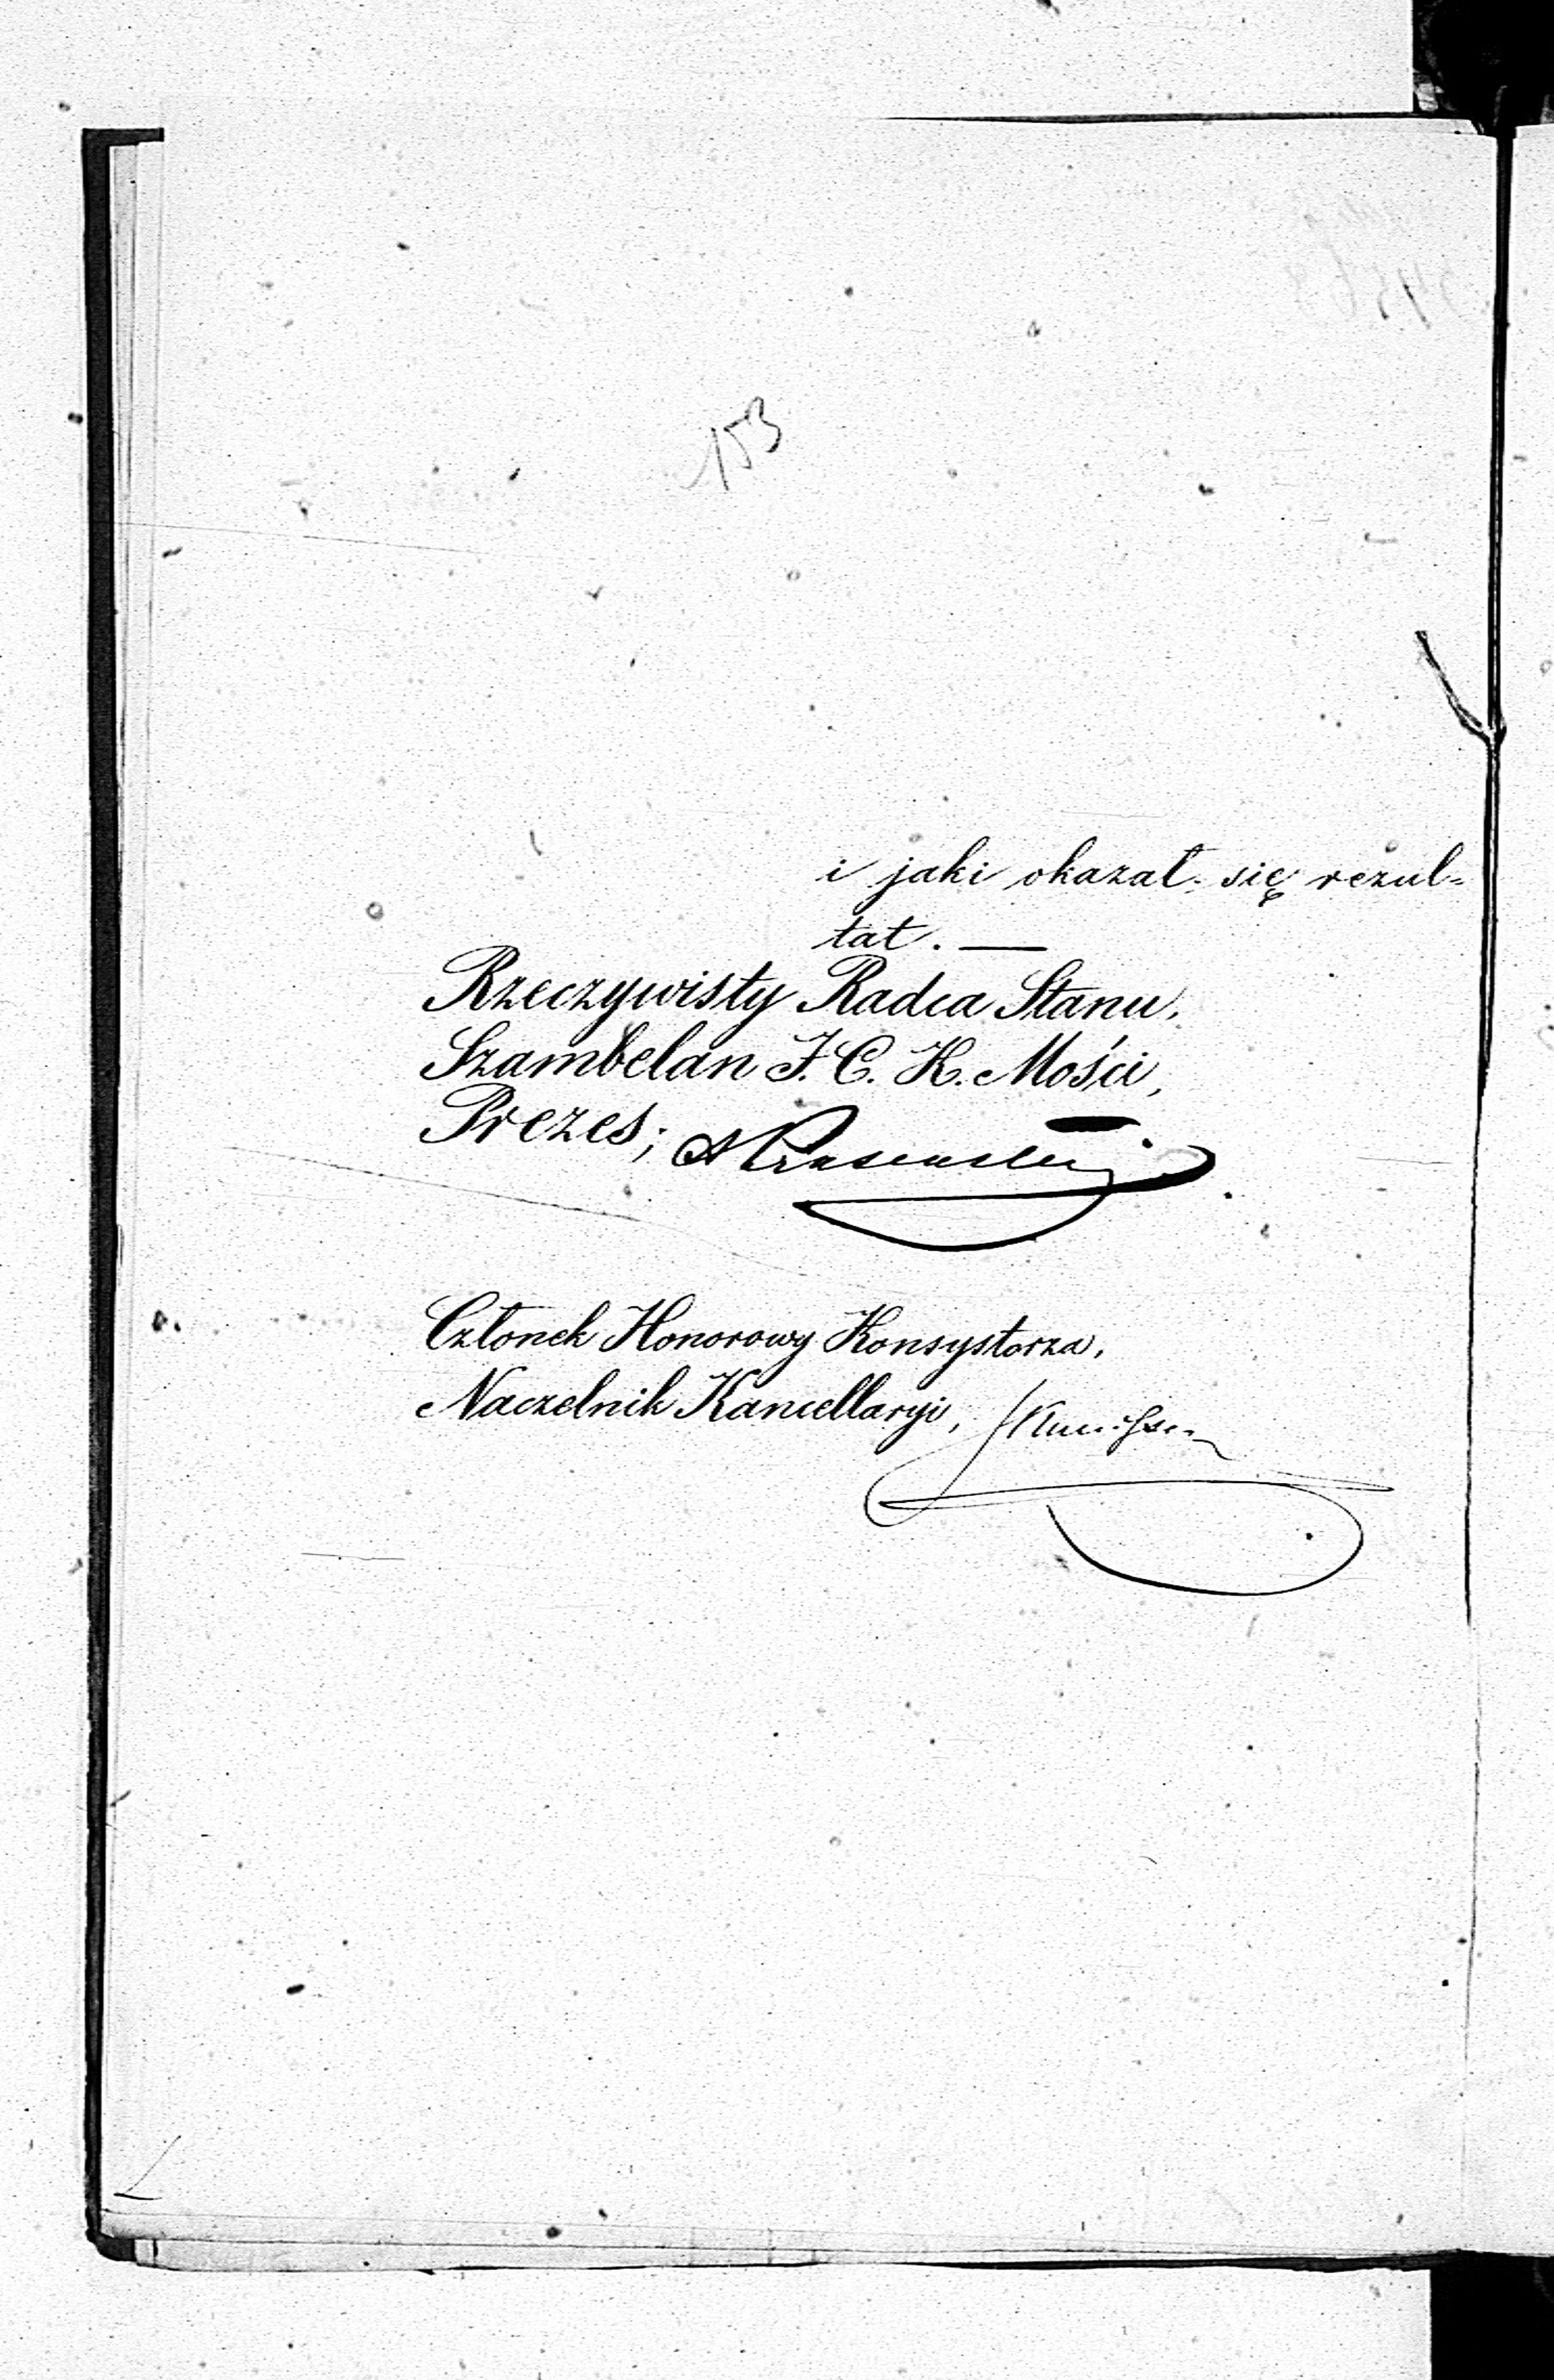 153
i jaki okazał się rezul-
tat. —
Rzeczywisty Radca Stanu,
Szambelan J. C. K. Mości,
Prezes;
Członek Honorowy Konsystorza,
Naczelnik Kancellaryi,